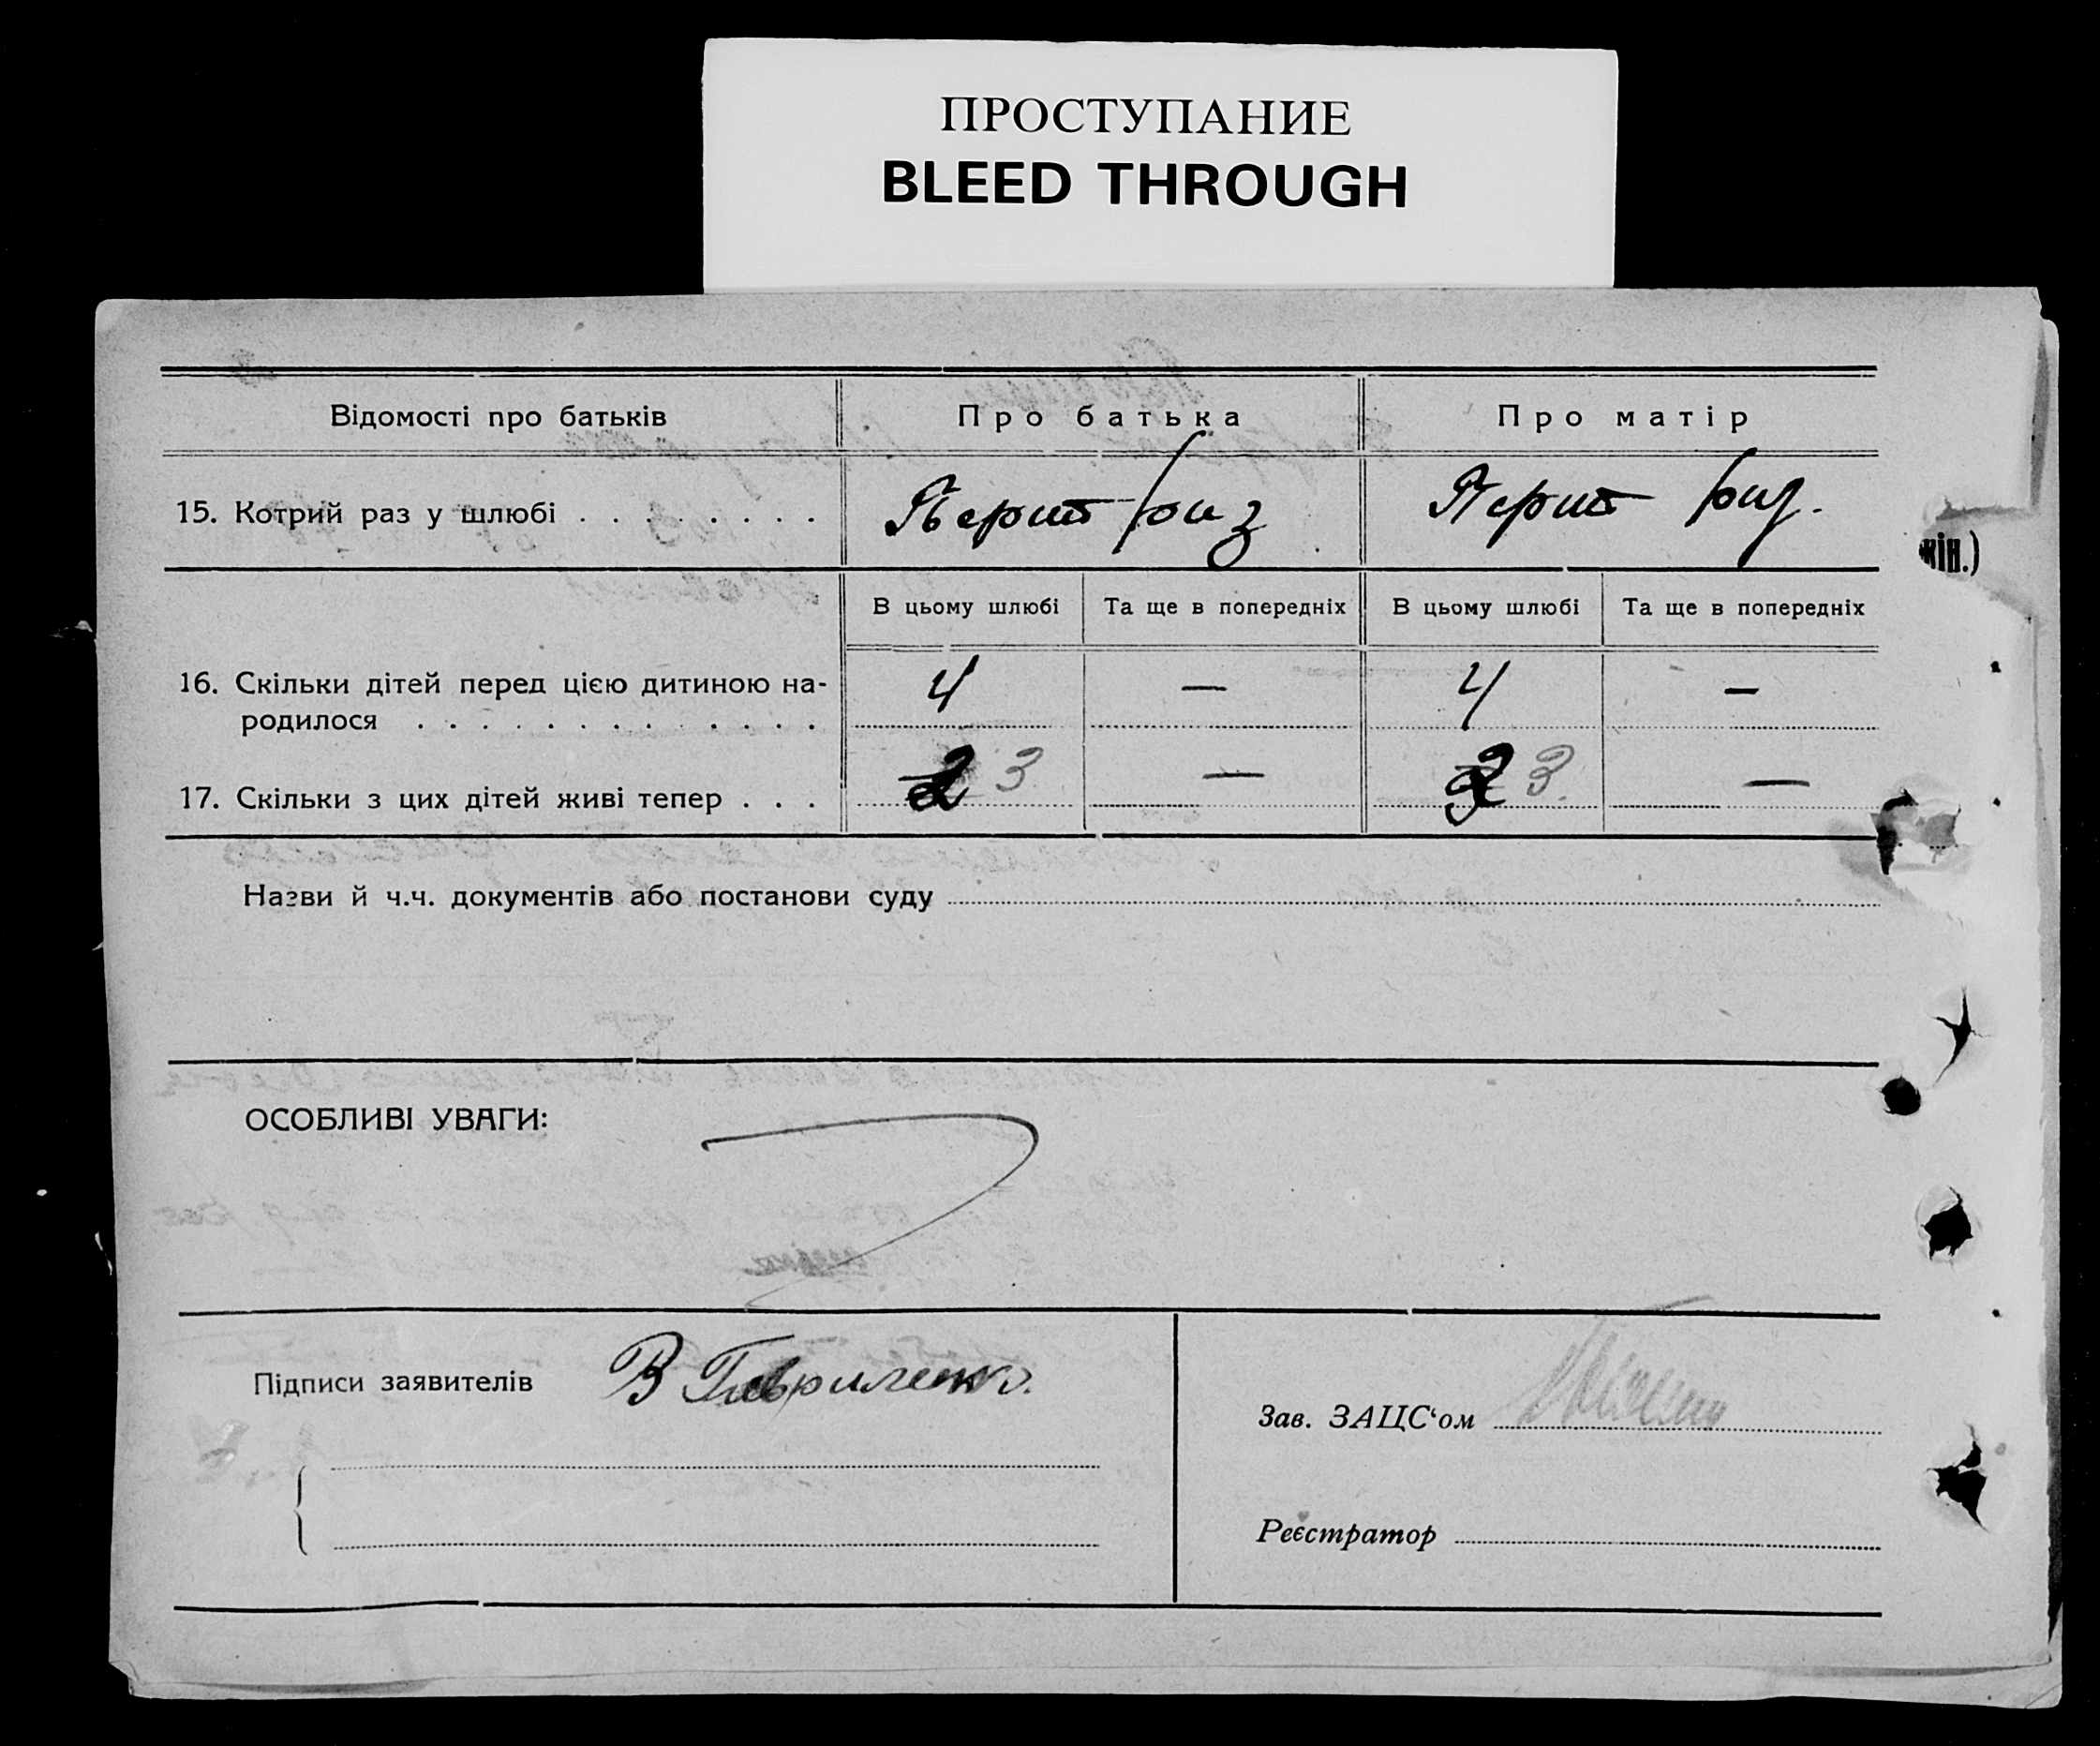 ПРОСТУПАНИЕ
BLEED THROUGH
Відомості про батьків
Про батька
Про матір
15. Котрий раз у шлюбі . . . . . . . .
Перший раз
Перший раз.
жін.)
В цьому шлюбі
Та ще в попередніх
В цьому шлюбі
Та ще в попередніх
16. Скільки дітей перед цією дитиною на-
родилося . . . . . . . . . . . . .
4
—
4
—
17. Скільки з цих дітей живі тепер . . .
2 3
—
3
—
Назви й ч.ч. документів або постанови суду
ОСОБЛИВІ УВАГИ:
Підписи заявителів
В Гавриленко.
Зав. ЗАЦС‘ом
Реєстратор